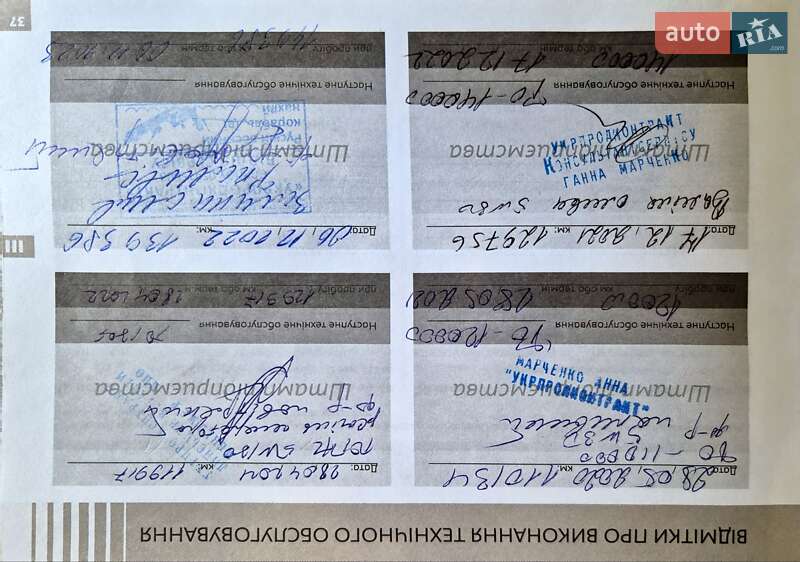 auto RIA.com
ВІДМІТКИ ПРО ВИКОНАННЯ ТЕХНІЧНОГО ОБСЛУГОВУВАННЯ
Дата: 28.05.2020 км: 110134
ТО-110000
5W30
ф-р паливний
Штамп підприємства
МАРЧЕНКО АННА
"УКРПРОДКОНТРАКТ"
ТО-120000
Наступне технічне обслуговування
при пробігу км або термін
120000 28.05.2021
Дата: 28.04.2021 км: 119917
5W30
ф-р повітряний
Штамп підприємства
Наступне технічне обслуговування
при пробігу км або термін
129917 28.04.2022
Дата: 17.12.2021 км: 129756
5W30
Штамп підприємства
УКРПРОДКОНТРАКТ
КОНСУЛЬТАНТ СЕРВІСУ
ГАННА МАРЧЕНКО
ТО-140000
Наступне технічне обслуговування
при пробігу км або термін
140000 17.12.2022
Дата: 06.12.2022 км: 139386
Штамп підприємства
Наступне технічне обслуговування
при пробігу км або термін
149386 06.12.2023
III
37